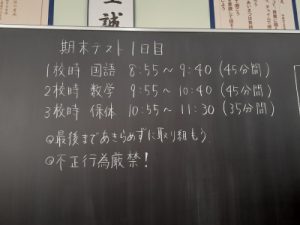 誠
期末テスト1日目
1校時 国語 8:55～9:40 (45分間)
2校時 数学 9:55～10:40 (45分間)
3校時 保体 10:55～11:30 (35分間)
@最後まであきらめずに取り組もう
@不正行為厳禁！